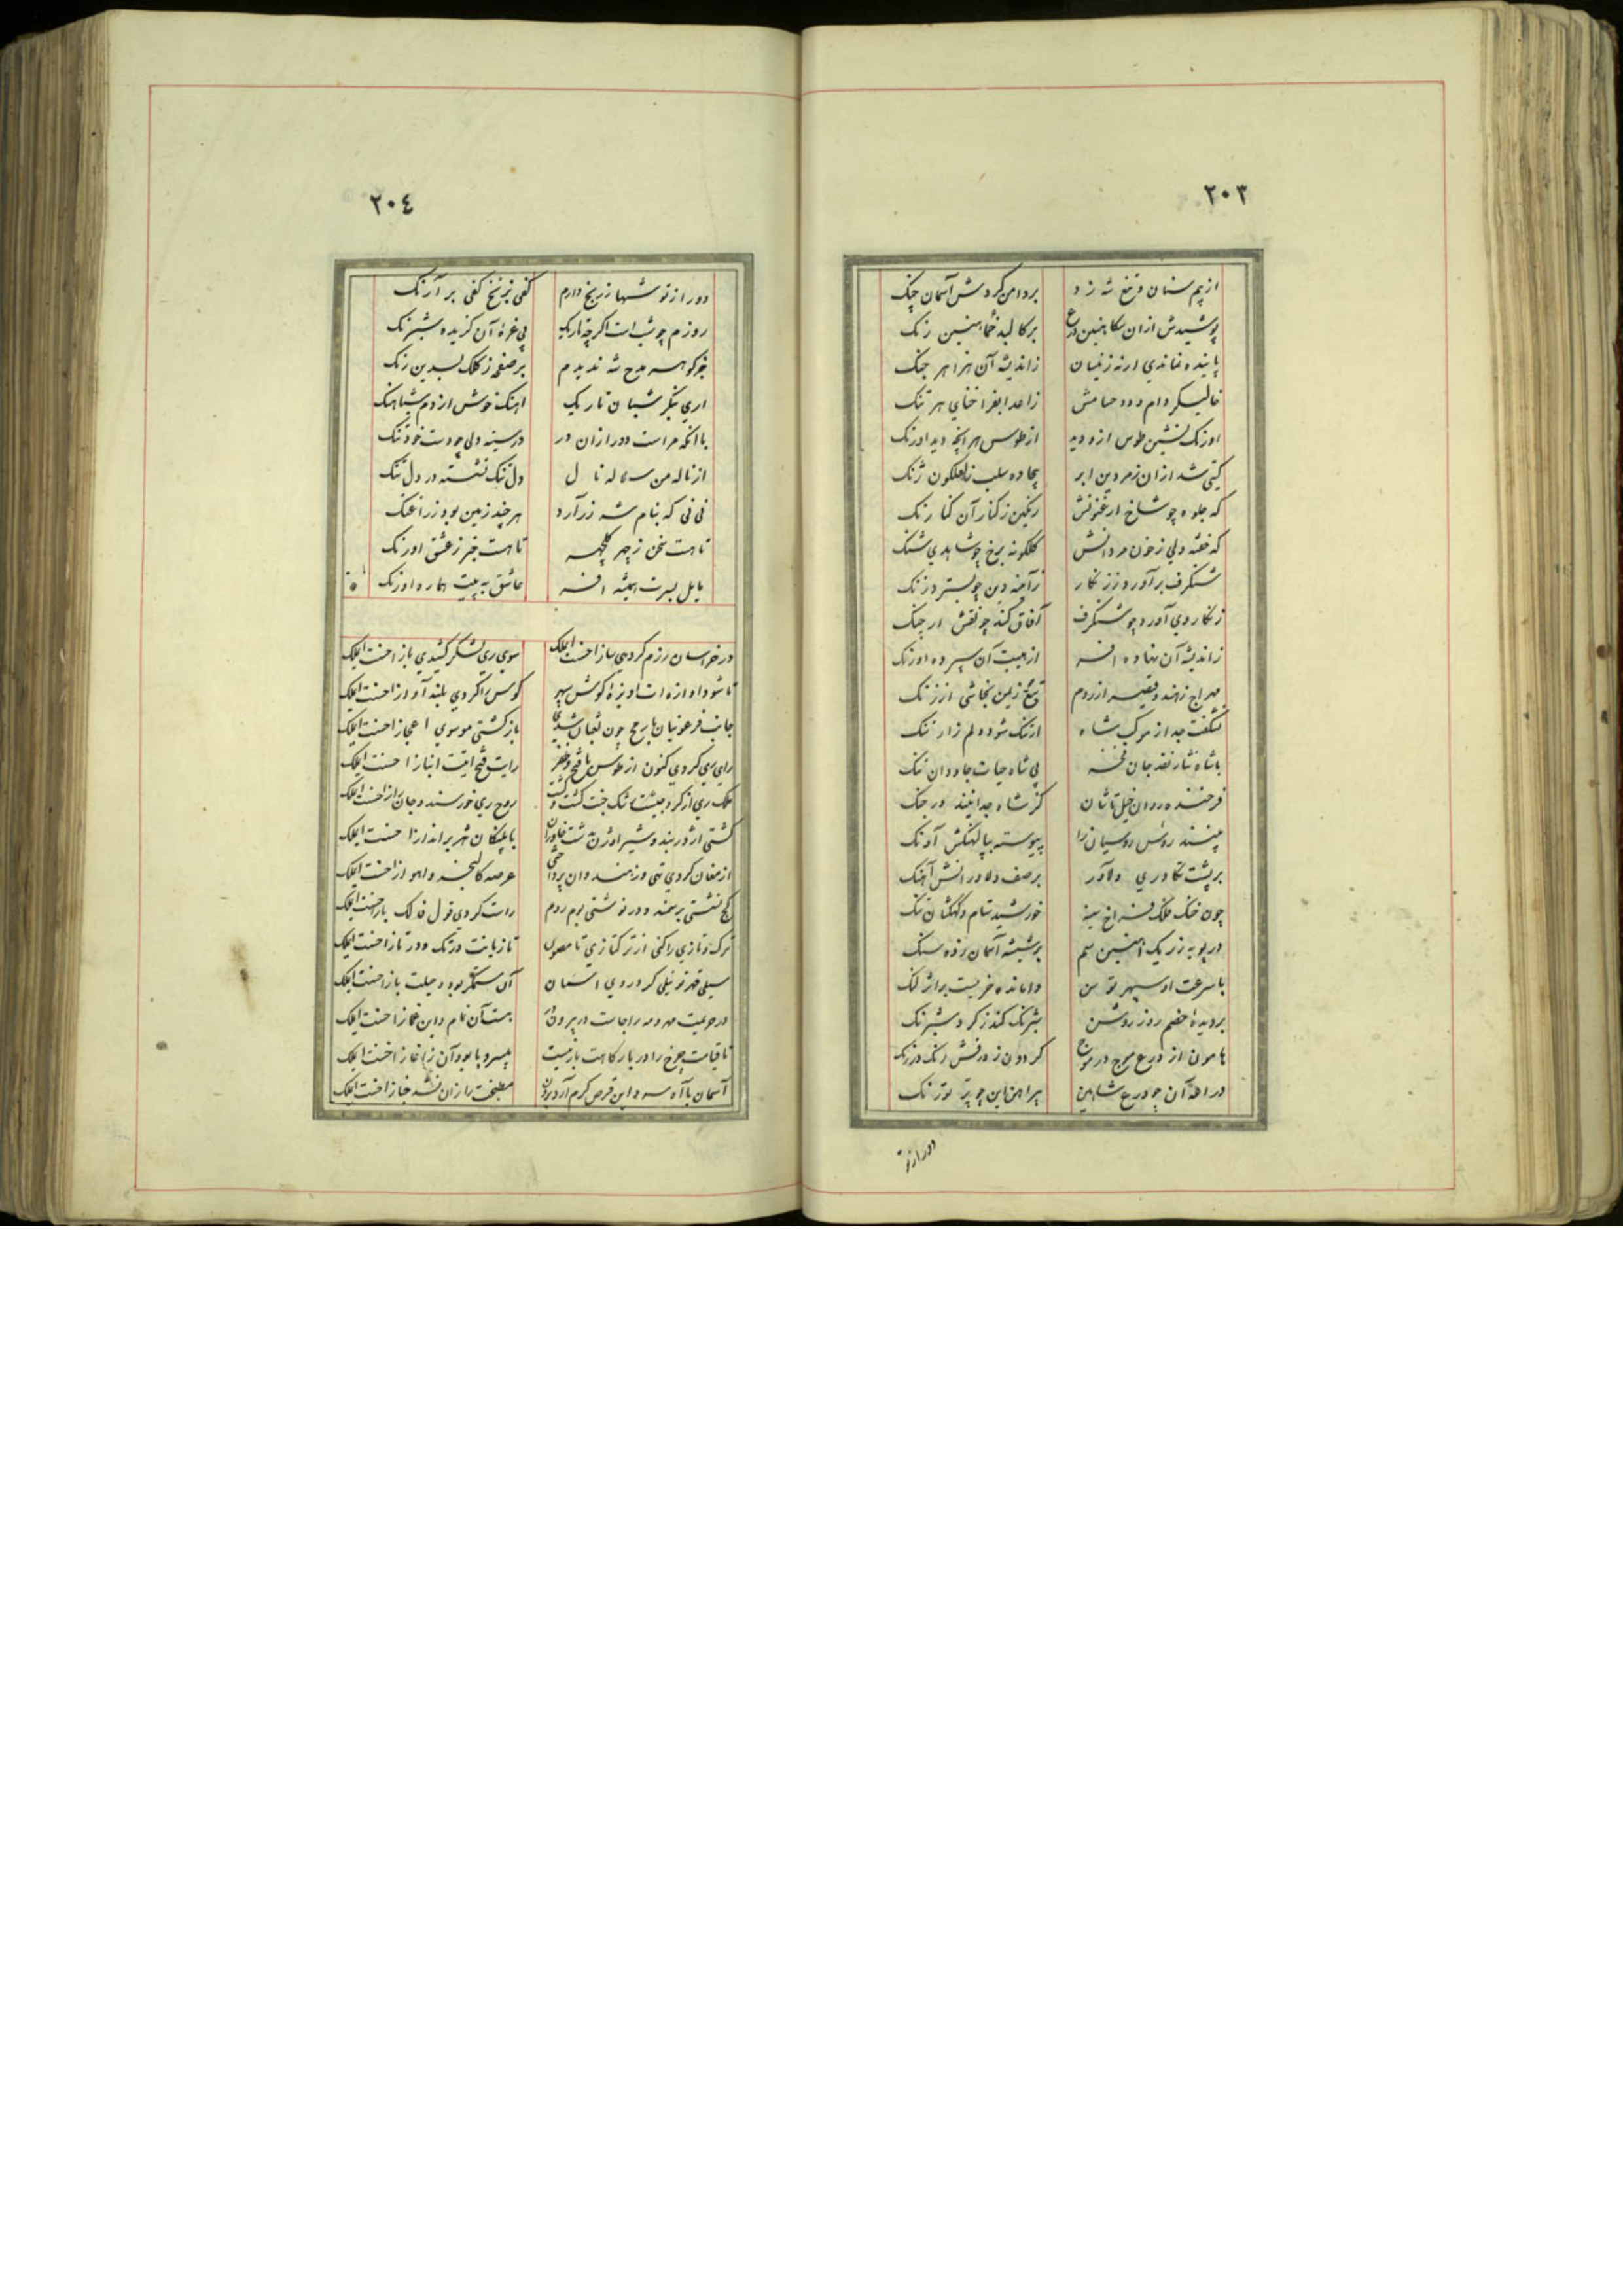 ٢٠٣
از بیم سنان و تیغ شه زد بر دامن گردش آسمان چنک
پوشیدش ازان نکا هنین درع بر کالبد خماهنین رنک
پاینده نماندی ار نه زینسان ز اندیشهٔ آن هژبر جنک
خالیسکر دام و دد حسامش
اورنک نشین طوس ازو دید از طوس هر انچه دید اورنک
کیتی شد ازان زمردین ابر بیجاده سلب ز لعلکون ژنک
که جلوه چو شاخ ارغنونش رنکین ز کنار آن کنارنک
که خفته ولی ز خون مردانش کلکونه برخ چو شاهدی شنک
شنکرف برآورد ز زنکار
زنکار روی آورد چو شنکرف آفاق کند چو نقش ارچنک
ز اندیشهٔ آن نهاده افسر از هیبت آن سپرده اورنک
مهراج ز هند و قیصر از روم نجاشی از زنک
نشکفت جدا ز موکب شاه ار تنک شود دلم ز ارتنک
با شاه نثار نقد جان فخر بی شاه حیات جاودان ننک
فرخنده روان خیل تاشان کز شاه جدا نیند در جنک
بینند رؤس روسیان را پیوسته بپالهنکش آونک
بر پشت تکاوری دلاور بر صف دلاورانش آهنک
چون خنک فلک فراخ سینه خورشید ستام و کهکشان تنک
در پویه ز زیر یک آهنین سم بر شیشهٔ آسمان زده سنک
با سرعت او سپهر توسن وامانده خریست برابر لنک
بر دیدهٔ خصم روز روشن شبرنک کند ز کرد شبرنک
هامون از درع موج در موج کردون ز درفش رنک در رنک
در اهه آن چو درع شاهین پیراهن این چو پر تورنک
دور از تو
٢٠٤
دور از تو شبها ز رنج دارم کفی بزنخ کفی بر آرنک
روزم چو شب است اکرچه تاریک بی غرهٔ آن کزیده شبرنک
جز کوهر مدح شه ندیدم بر صفحه ز کلک بسدین رنک
اری بنکر شبان تاریک اهنک خوش از دم شباهنک
با انکه مراست دور ازان در در سینه دلی چو دست خود تنک
از نالهٔ من سه ساله نال دل تنک نشسته در دل تنک
نی نی که بنام شه زر آرد هر چند زمین بود زراغنک
تا هست سخن ز چهر کلچهر تا هست خبر ز عشق اورنک
مایل بسرت همیشه افسر عاشق به پیت هماره اورنک
در خراسان رزم کردی ساز احسنت ای ملک سوی ری لشکر کشیدی باز احسنت ای ملک
تا شود اوازه ات آویزهٔ کوش سپهر کوس را کردی بلند آواز احسنت ای ملک
جانب فرعونیان با رمح چون ثعبان شدی باز کشتی موسوی اعجاز احسنت ای ملک
رای ری کردی کنون از طوس با فتح و ظفر رایت فتح ایتت انباز احسنت ای ملک
ملک ری از کرد جیشت رشک جنت کشت و کشت روح ری خورسند و جان راز احسنت ای ملک
کشتی اژدر بند و شیر اوژن به دشت خاوران با پلنکان شهر برانداز احسنت ای ملک
از مغان کردی تهی وز هندوان پرداختی عرصهٔ کالنجر و اهواز احسنت ای ملک
کج نشستی بر سمند و در نوشتی بوم روم راست کردی قول خاک باز احسنت ای ملک
ترک و تازی را کنی از ترکتازی تا مصون تازیانت در تک و در تاز احسنت ای ملک
سیلی قهر تو نیلی کرد روی آسمان آن ستمکر بود و حیلت باز احسنت ای ملک
در حریمت مهر و مه را جاست در بیرون در هست آن نمام و این غماز احسنت ای ملک
تا قیامت چرخ را در بارکاهت بار نیست بی سر و پا بود آن ز آغاز احسنت ای ملک
آسمان با آه سرد این قرص کرم آرد برون مطبخت را زان نشد خباز احسنت ای ملک